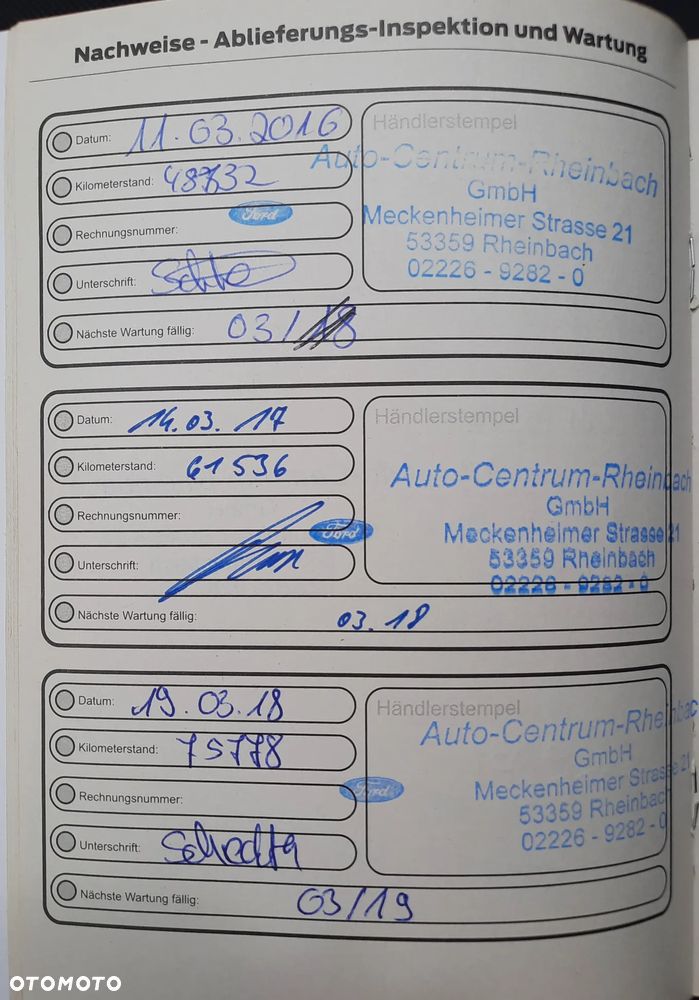 Nachweise - Ablieferungs-Inspektion und Wartung
Datum: 11.03.2016
Kilometerstand: 48732
Rechnungsnummer:
Unterschrift:
Nächste Wartung fällig: 03/18
Händlerstempel
Auto-Centrum-Rheinbach
GmbH
Meckenheimer Strasse 21
53359 Rheinbach
02226 - 9282 - 0
Ford
Datum: 14.03.17
Kilometerstand: 61536
Rechnungsnummer:
Unterschrift:
Nächste Wartung fällig: 03.18
Händlerstempel
Auto-Centrum-Rheinbach
GmbH
Meckenheimer Strasse 21
53359 Rheinbach
02226 - 9282 - 0
Ford
Datum: 19.03.18
Kilometerstand: 75778
Rechnungsnummer:
Unterschrift:
Nächste Wartung fällig: 03/19
Händlerstempel
Auto-Centrum-Rheinbac
GmbH
Meckenheimer Strasse 21
53359 Rheinbach
02226 - 9282 - 0
Ford
OTOMOTO